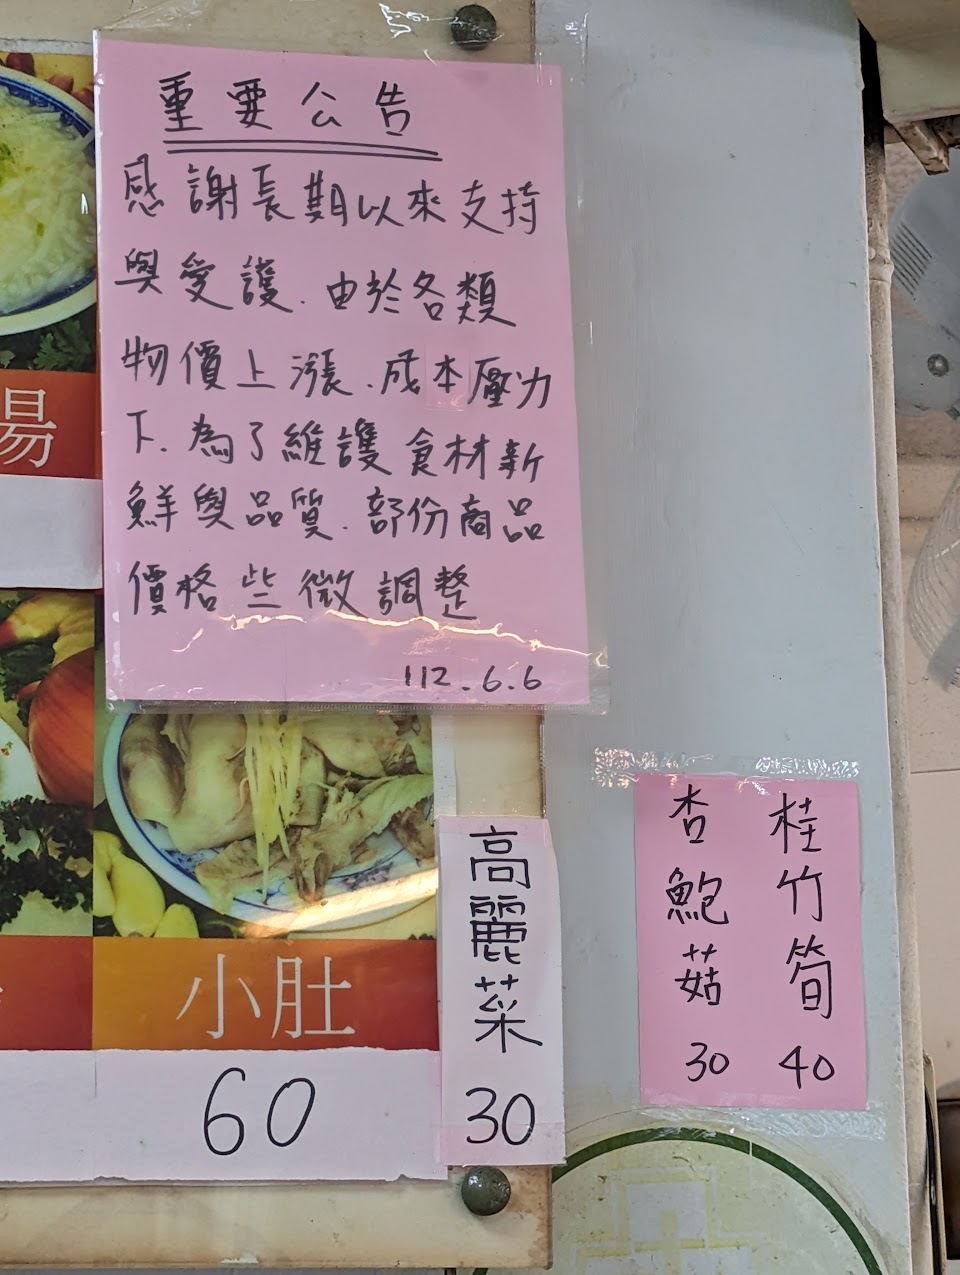 重要公告
感謝長期以來支持
與愛護.由於各類
物價上漲.成本壓力
下.為了維護食材新
鮮與品質.部份商品
價格些微調整
112.6.6
小肚
60
高麗菜
30
桂竹筍
40
杏鮑菇
30